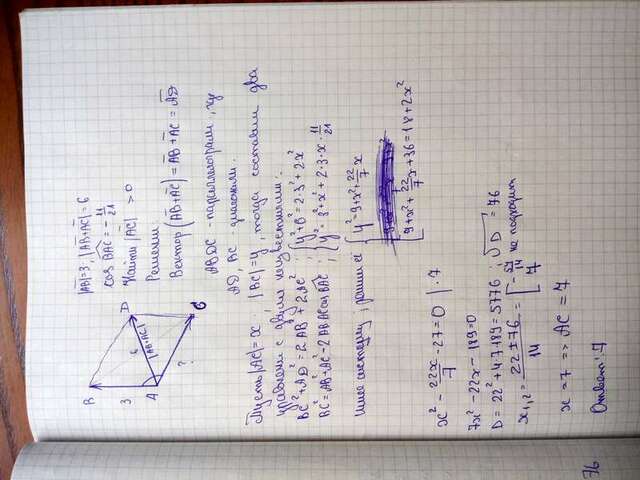 |AB|=3, |AB+AC|=6
cos BAC = - 11/21
Найти |AC| >0
Решение
Вектор (AB+AC) = AB + AC = AD
ABDC - параллелограмм, где
AD, BC диагонали.
B
D
C
A
3
6
|AB+AC|
?
Пусть |AC|=x, |BC|=y, тогда составим два
уравнения с двумя неизвестными:
BC²+AD²=2AB²+2AC²; { y²+6²=2·3²+2x²
BC²=AB²+AC²-2AB·AC cos BAC; { y²=9+x²+2·3·x·11/21
систему; решим её { y²=9+x²+22/7 x
[ 9+x²+22/7 x+36=18+2x²
x² - 22x/7 - 27=0 | ·7
7x²-22x-189=0
D = 22²+4·7·189=5776; √D = 76
x₁,₂ = (22±76)/14 = [ -54/14 не подходит
7
x = 7 => AC = 7
Ответ: 7
76